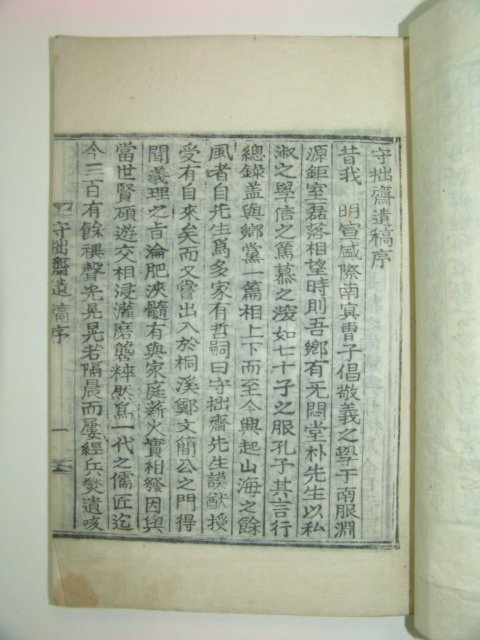 守拙齋遺稿序
昔我 明宣盛際南冥曹子倡敬義之學于南服淵
源鉅室磊落相望時則吾鄉有无悶堂朴先生以私
淑之學信之篤慕之深如七十子之服孔子其言行
總錄盖與鄉黨一篇相上下而至今興起山海之餘
風者自先生爲多家有哲嗣曰守拙齋先生謨猷授
受有自來矣而又嘗出入於桐溪鄭文簡公之門得
聞義理之旨淪肥浹髓有與家庭薪火實相發因與
當世賢碩遊交相浸灌磨礱粹然爲一代之儒匠迄
今三百有餘禩聲光晃晃若隔晨而屢經兵燹遺咳
守拙齋遺稿序 一